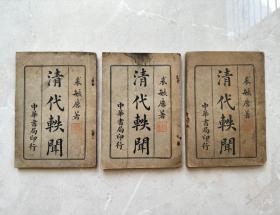 裘毓麐著
清代軼聞
中華書局印行
裘毓麐著
清代軼聞
中華書局印行
裘毓麐著
清代軼聞
中華書局印行